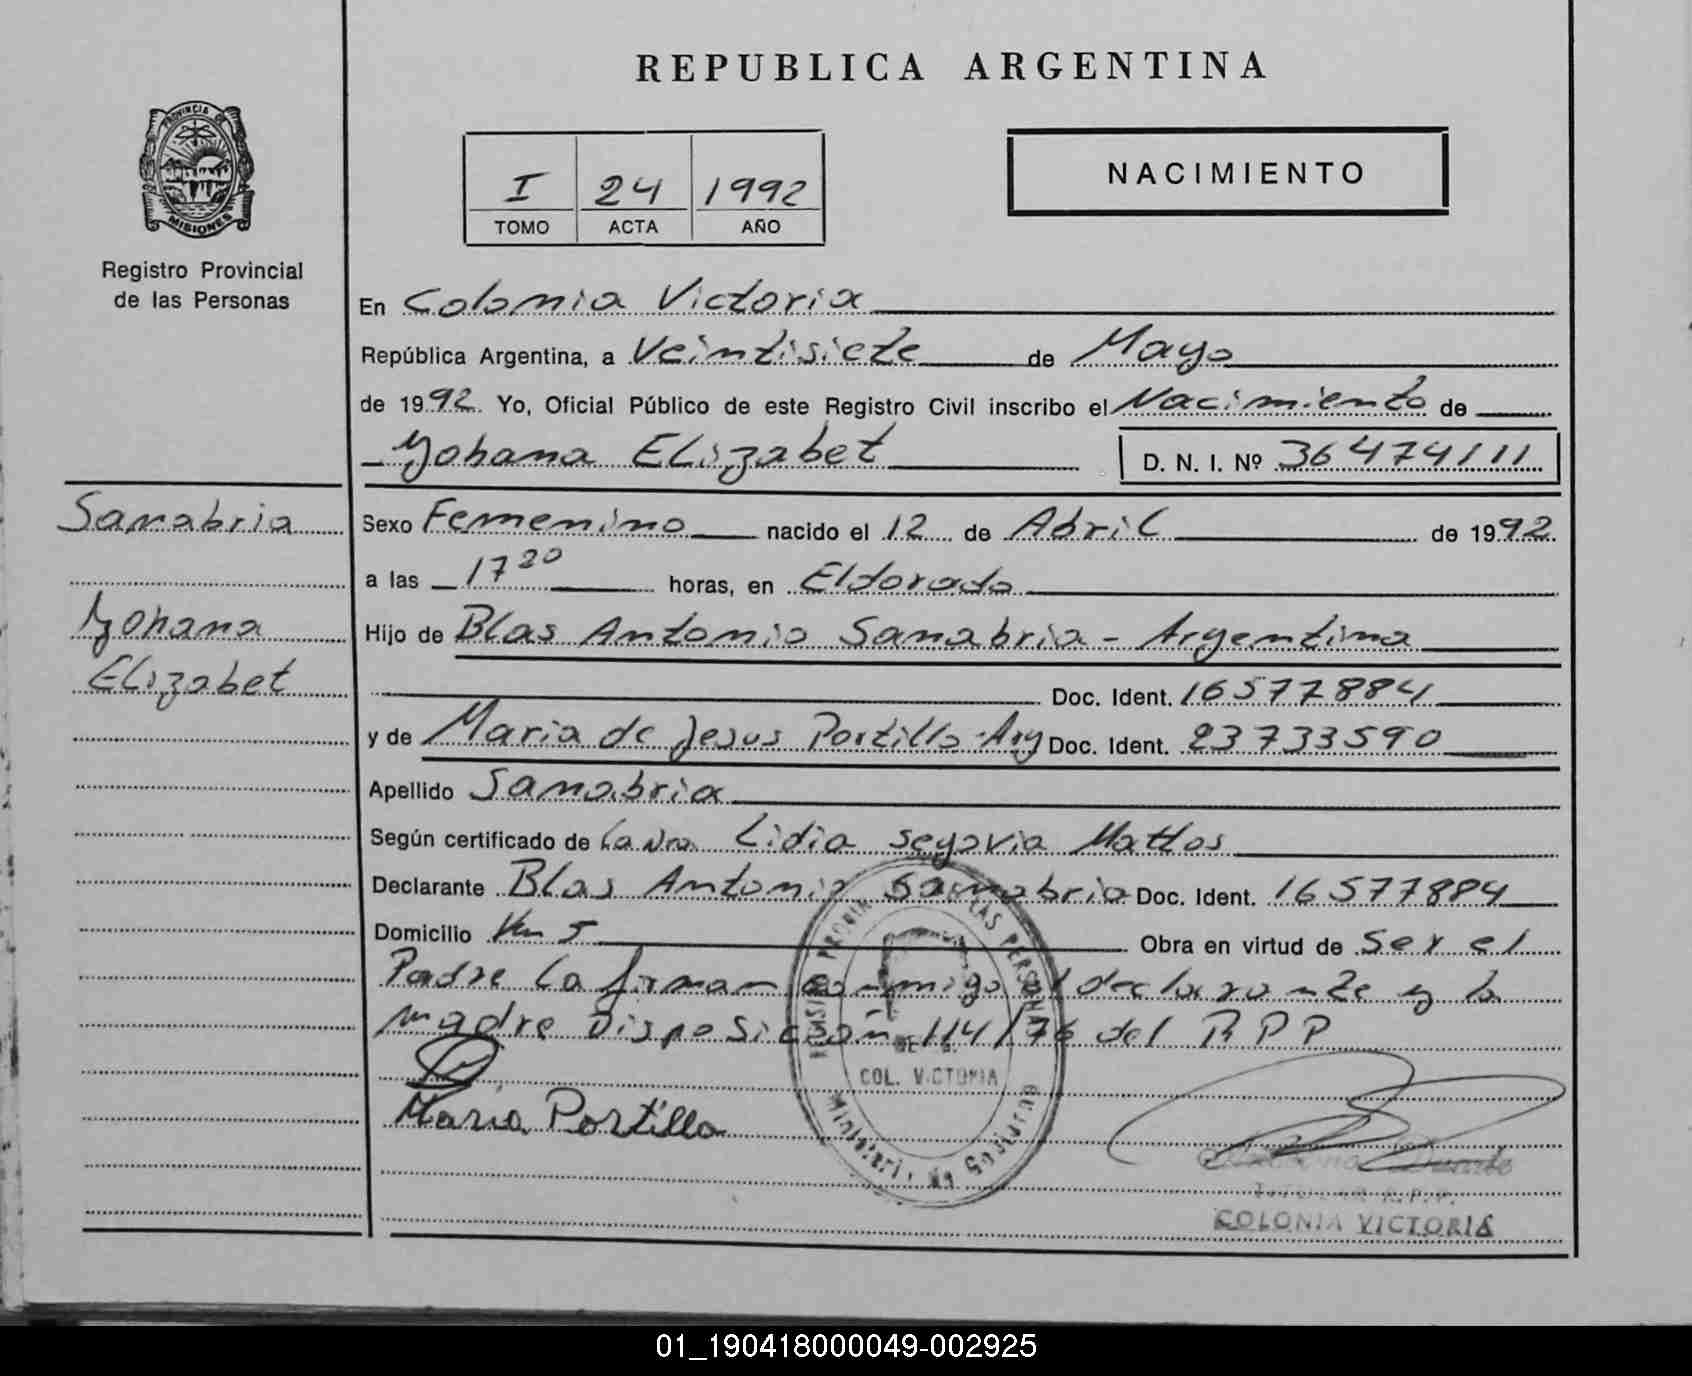 REPUBLICA ARGENTINA
PROVINCIA DE
MISIONES
Registro Provincial
de las Personas
I 24 1992
TOMO ACTA AÑO
NACIMIENTO
En Colonia Victoria
República Argentina, a Veintisiete de Mayo
de 1992. Yo, Oficial Público de este Registro Civil inscribo el Nacimiento de
Yohana Elizabet D. N. I. Nº 36474111
Sanabria
Yohana
Elizabet
Sexo Femenino nacido el 12 de Abril de 1992.
a las 17 20 horas, en Eldorado
Hijo de Blas Antonio Sanabria - Argentina
Doc. Ident. 16577884
y de Maria de Jesus Portillo - Arg Doc. Ident. 23733590
Apellido Sanabria
Según certificado de La Dra. Lidia Segovia Mattos
Declarante Blas Antonio Sanabria Doc. Ident. 16577884
Domicilio Km 5 Obra en virtud de Ser el
Padre La firman conmigo el declarante y la
madre Disposición 114/76 del RPP
COL. VICTORIA
Ministerio de Gobierno
Maria Portillo
Duarte
R.P.P.
COLONIA VICTORIA
01_190418000049-002925